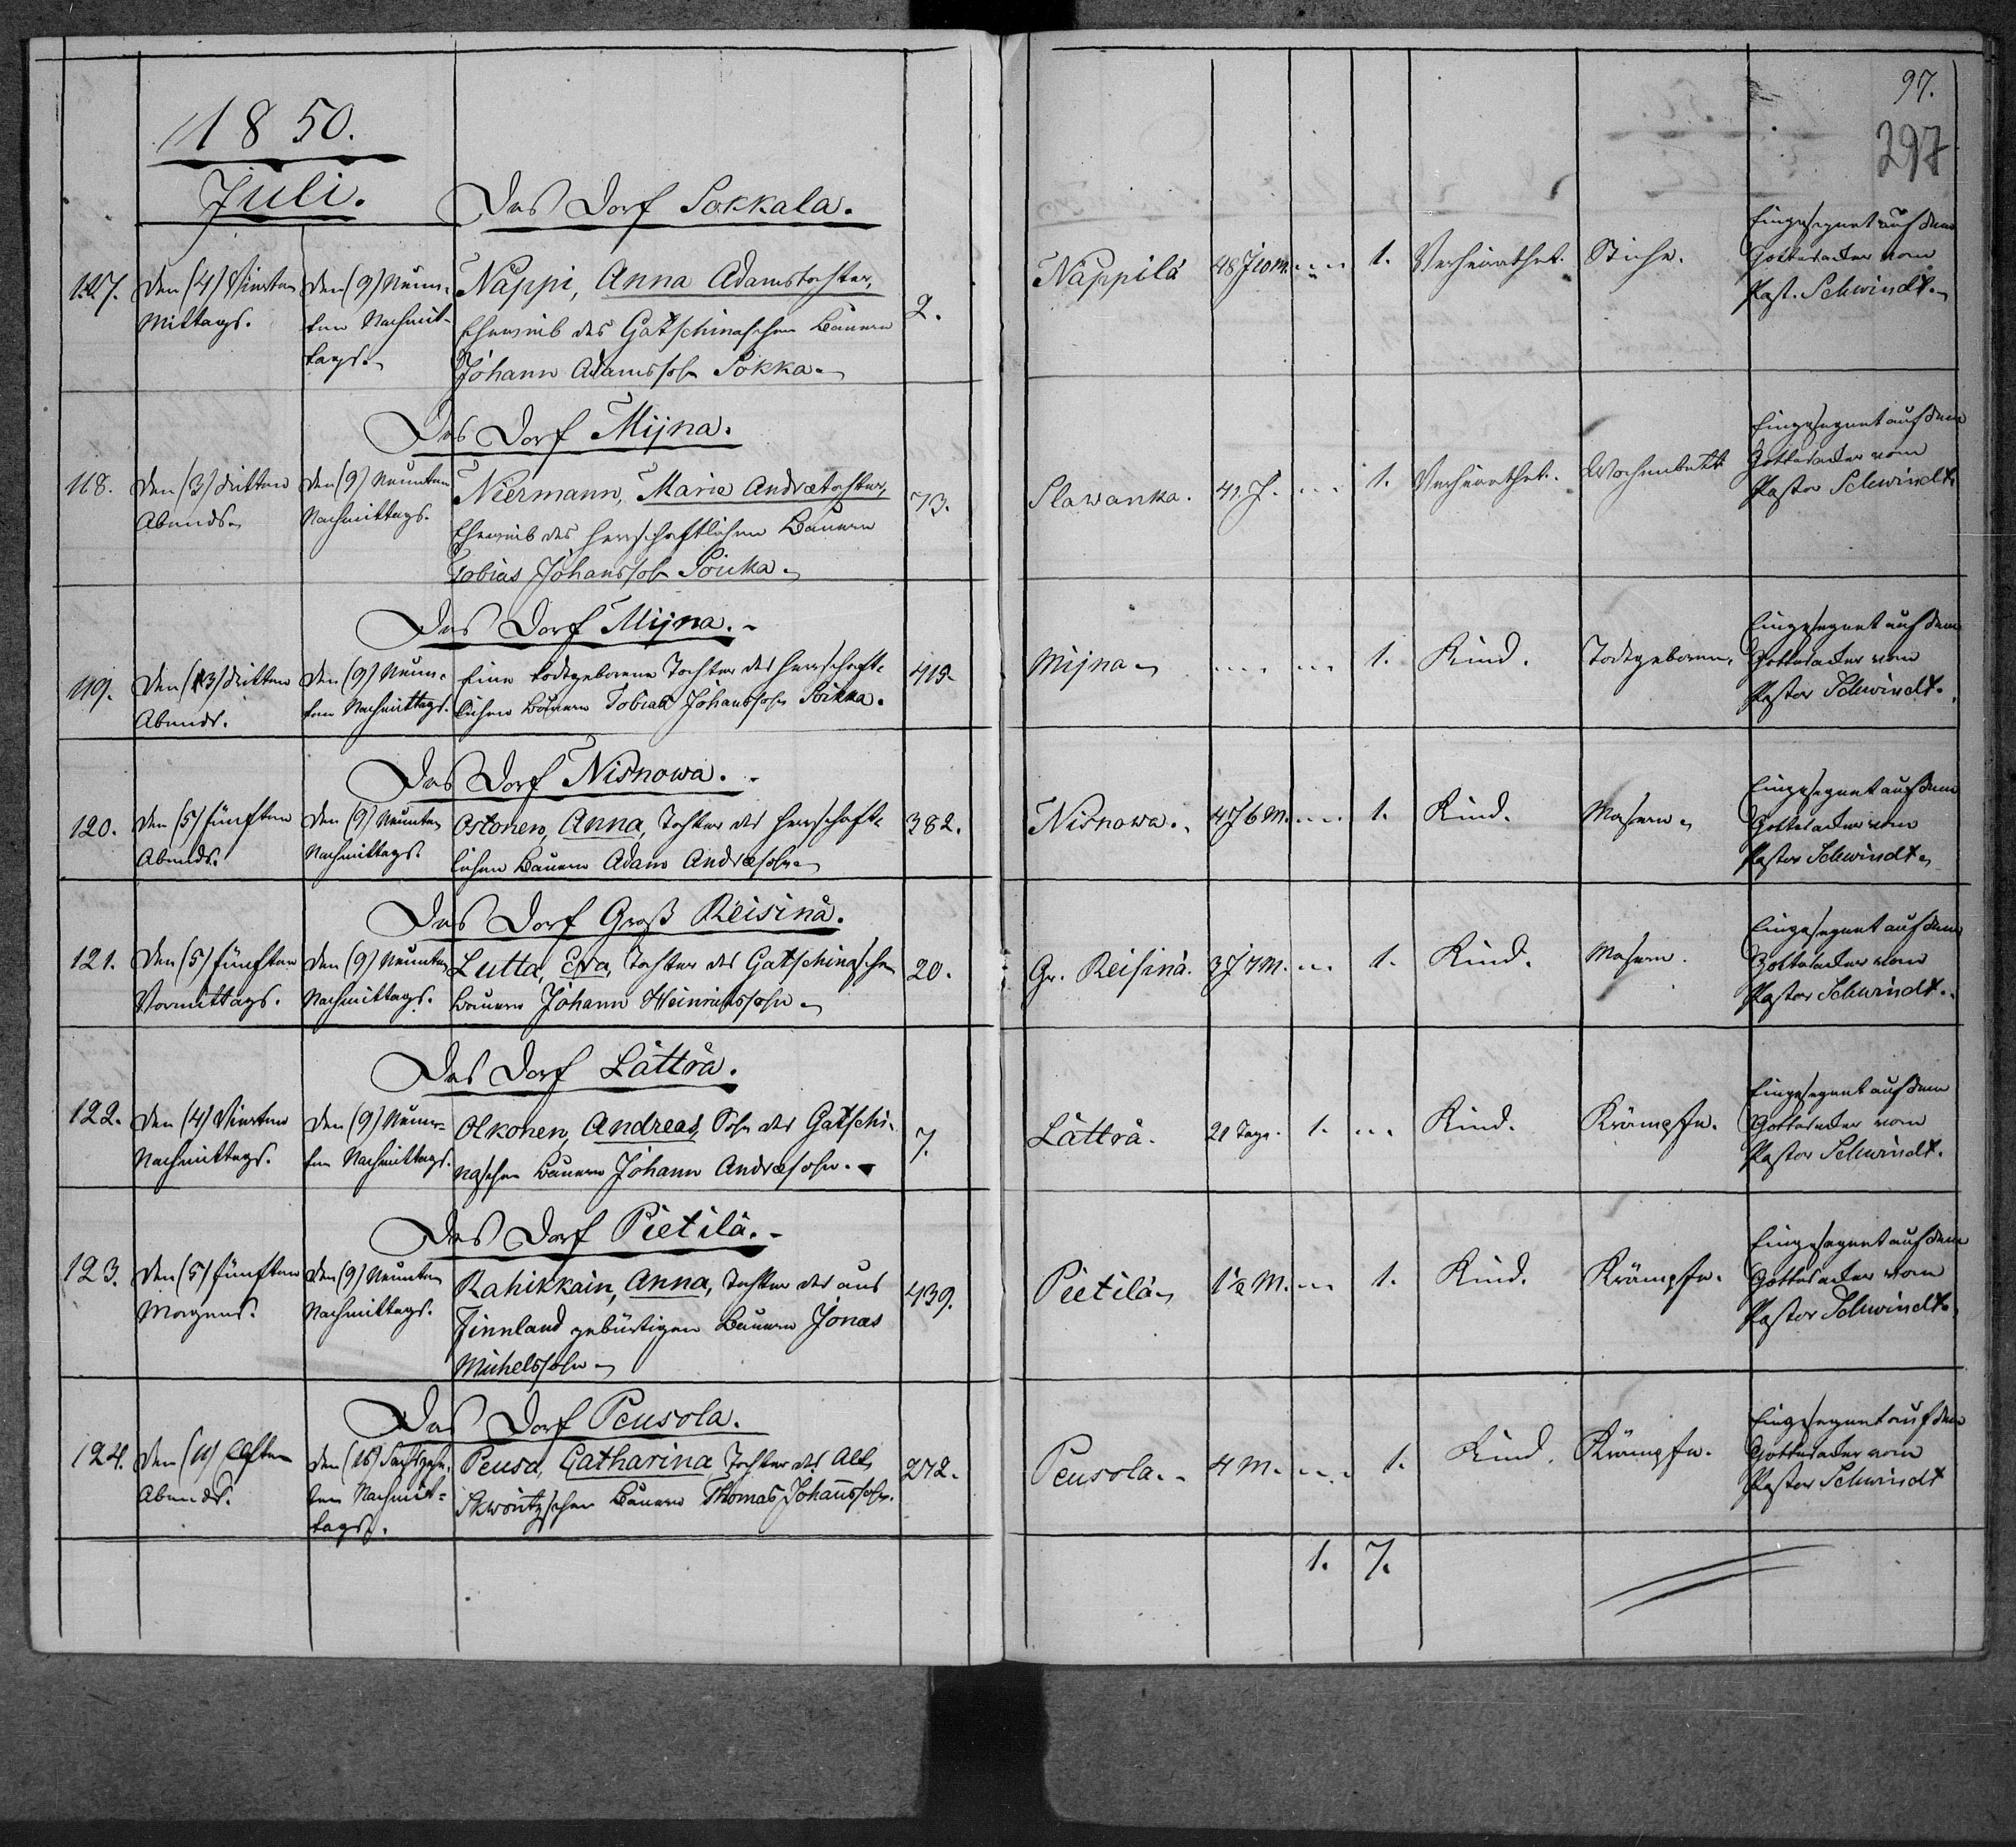 1850.
Juli.
97.
297
Das Dorf Sokkala.
117. Den (4) Vierten Mittags. Den (9) Neun- ten Nachmit- tags. Näppi, Anna Adamstochter, 2. Näppilä 48 J 10 M. 1. Verheirathet. Stiche. Eingesegnet auf dem
Eheweib des Gatschinaschen Bauern Gottesacker vom
Johann Adamssohn Sokka. Past. Schwindt.
Das Dorf Mijna.
118. Den (3) dritten Abends. Den (9) Neunten Nachmittags. Niermann, Maria Andreætochter, 73. Slawanka. 41. J. 1. Verheirathet. Wochenbett Eingesegnet auf dem
Eheweib des herrschaftlichen Bauern Gottesacker vom
Tobias Johanssohn Soikka. Pastor Schwindt.
Das Dorf Mijna.
119. Den (3) dritten Abends. Den (9) Neun- ten Nachmittags. Eine todtgeborene Tochter des herrschaft- 419. Mijna 1. Kind. Todtgeboren. Eingesegnet auf dem
lichen Bauern Tobias Johanssohn Soikka. Gottesacker vom
Pastor Schwindt.
Das Dorf Nisnowa.
120. Den (5) fünften Abends. Den (9) Neunten Nachmittags. Ostonen, Anna, Tochter des herrschaft- 382. Nisnowa. 4 J 6 M. 1. Kind. Masern. Eingesegnet auf dem
lichen Bauern Adam Andreæsohn. Gottesacker vom
Pastor Schwindt.
Das Dorf Groß Reisinä.
121. Den (5) fünften Vormittags. Den (9) Neunten Nachmittags. Lutta, Eva, Tochter des Gatschinaschen 20. Gr. Reisinä. 3 J 7 M. 1. Kind. Masern. Eingesegnet auf dem
Bauern Johann Heinrichssohn. Gottesacker vom
Pastor Schwindt.
Das Dorf Lätträ.
122. Den (4) Vierten Nachmittags. Den (9) Neun- ten Nachmittags. Olkonen, Andreas, Sohn des Gatschi- 7. Lätträ. 21 Tage. 1. Kind. Krämpfe. Eingesegnet auf dem
naschen Bauern Johann Andreæsohn. Gottesacker vom
Pastor Schwindt.
Das Dorf Pietilä.
123. Den (5) fünften Morgens. Den (9) Neunten Nachmittags. Rahikkain, Anna, Tochter des aus 439. Pietilä 1½ M. 1. Kind. Krämpfe. Eingesegnet auf dem
Finnland gebürtigen Bauern Jonas Gottesacker vom
Michelssohn Pastor Schwindt.
Das Dorf Peusola.
124. Den (11) Elften Abends. Den (16) Sechszehn- ten Nachmit- tags. Peusa, Catharina, Tochter des Alt 272. Peusola. 4 M. 1. Kind. Krämpfe. Eingesegnet auf dem
Skworitzschen Bauern Thomas Johannssohn. Gottesacker vom
Pastor Schwindt
1. 7.